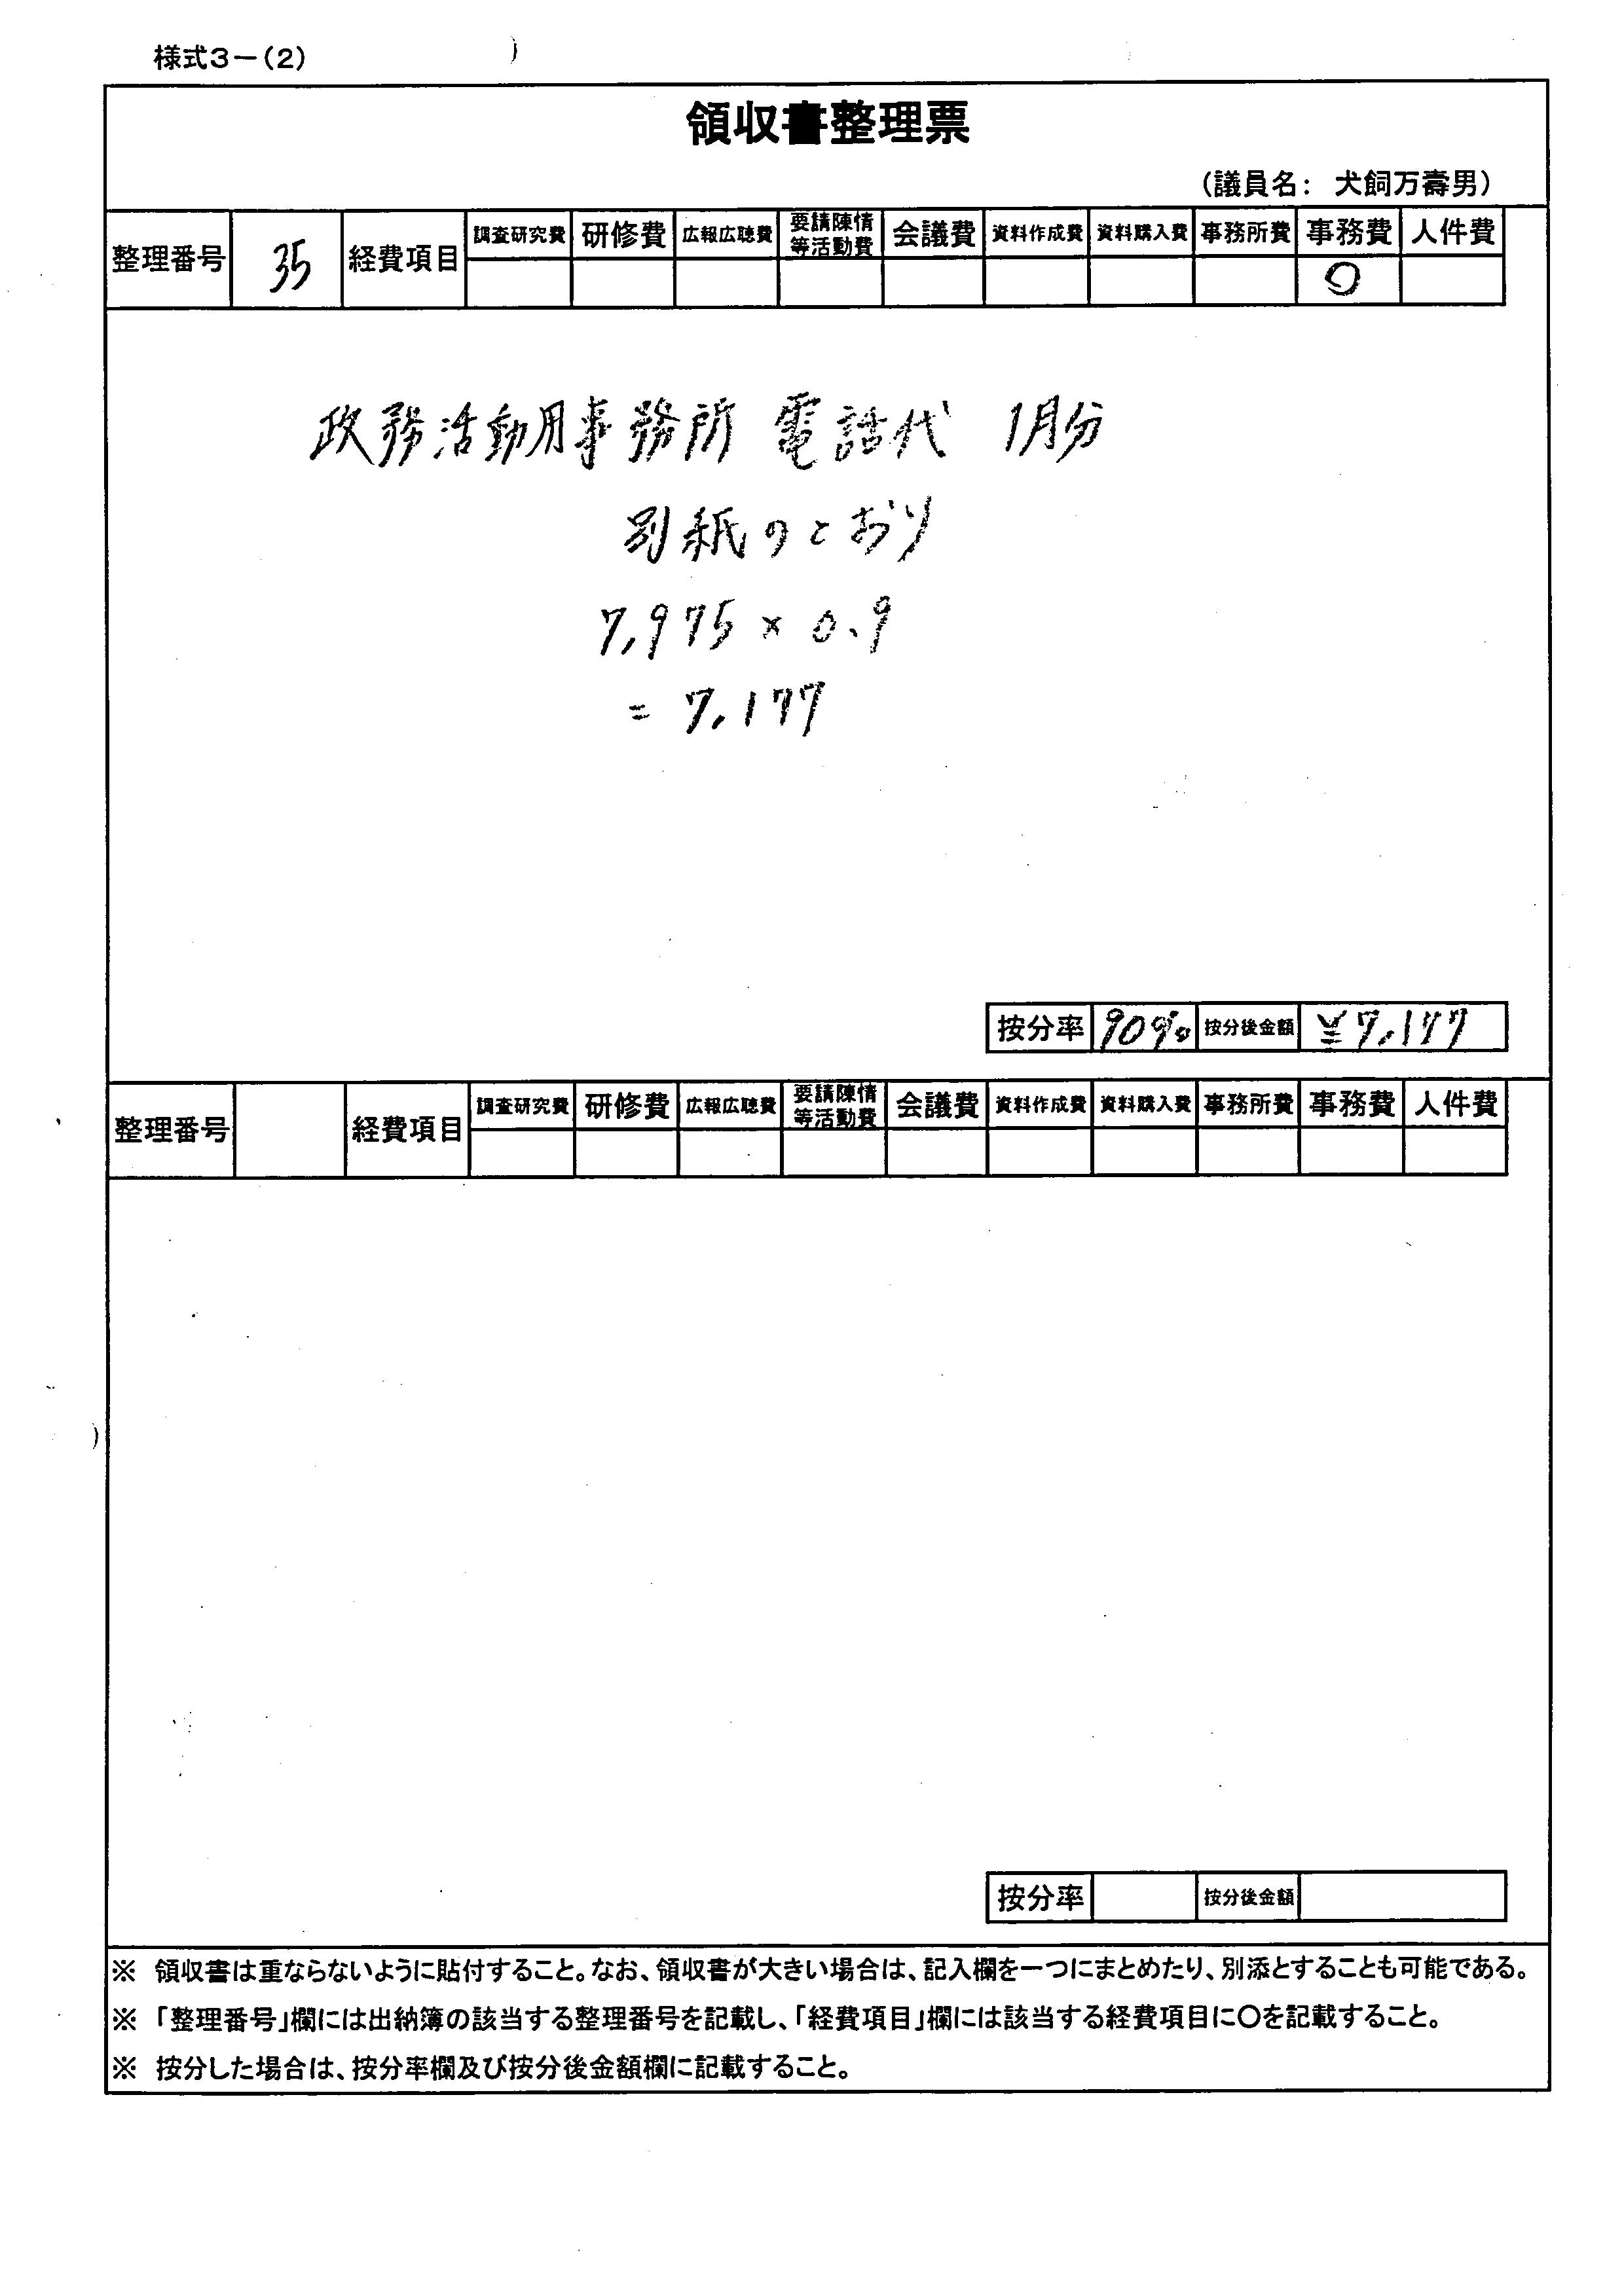 様式3－(2)
領収書整理票
(議員名: 犬飼万壽男)
整理番号 35 経費項目 調査研究費 研修費 広報広聴費 要請陳情等活動費 会議費 資料作成費 資料購入費 事務所費 事務費 人件費
○
政務活動用事務所 電話代 1月分
別紙のとおり
7,975 × 0.9
= 7,177
按分率 90% 按分後金額 ¥7,177
整理番号 経費項目 調査研究費 研修費 広報広聴費 要請陳情等活動費 会議費 資料作成費 資料購入費 事務所費 事務費 人件費
按分率 按分後金額
※ 領収書は重ならないように貼付すること。なお、領収書が大きい場合は、記入欄を一つにまとめたり、別添とすることも可能である。
※ 「整理番号」欄には出納簿の該当する整理番号を記載し、「経費項目」欄には該当する経費項目に○を記載すること。
※ 按分した場合は、按分率欄及び按分後金額欄に記載すること。